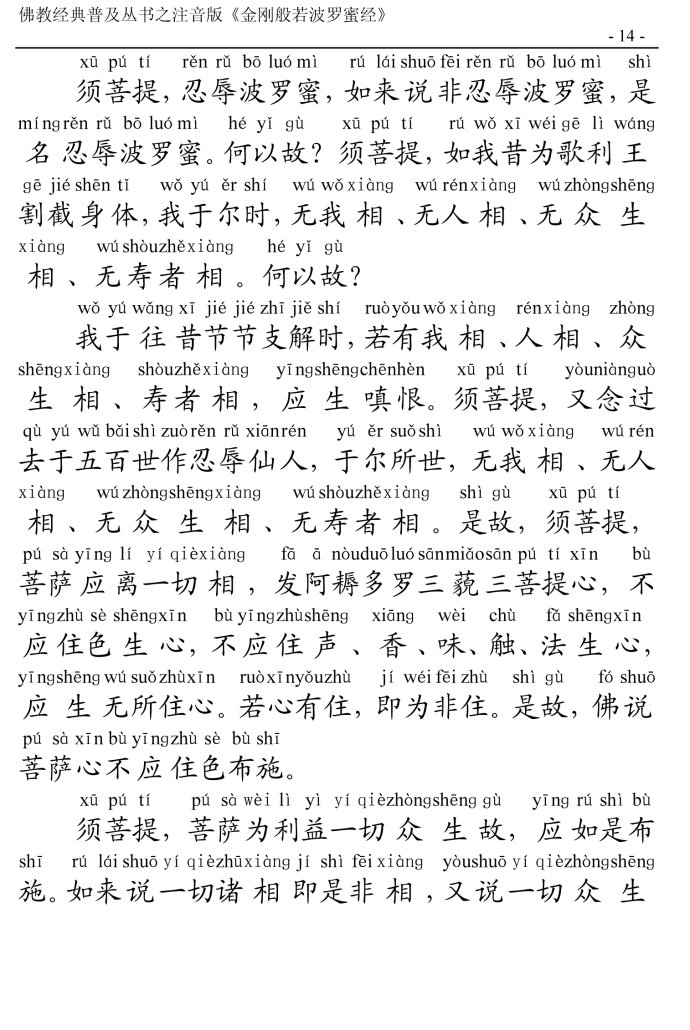 佛教经典普及丛书之注音版《金刚般若波罗蜜经》
- 14 -
xū pú tí rěn rǔ bō luó mì rú lái shuō fēi rěn rǔ bō luó mì shì
须菩提，忍辱波罗蜜，如来说非忍辱波罗蜜，是
míng rěn rǔ bō luó mì hé yǐ gù xū pú tí rú wǒ xī wéi gē lì wáng
名忍辱波罗蜜。何以故？须菩提，如我昔为歌利王
gē jié shēn tǐ wǒ yú ěr shí wú wǒ xiàng wú rén xiàng wú zhòng shēng
割截身体，我于尔时，无我相、无人相、无众生
xiàng wú shòu zhě xiàng hé yǐ gù
相、无寿者相。何以故？
wǒ yú wǎng xī jié jié zhī jiě shí ruò yǒu wǒ xiàng rén xiàng zhòng
我于往昔节节支解时，若有我相、人相、众
shēng xiàng shòu zhě xiàng yīng shēng chēn hèn xū pú tí yòu niàn guò
生相、寿者相，应生嗔恨。须菩提，又念过
qù yú wǔ bǎi shì zuò rěn rǔ xiān rén yú ěr suǒ shì wú wǒ xiàng wú rén
去于五百世作忍辱仙人，于尔所世，无我相、无人
xiàng wú zhòng shēng xiàng wú shòu zhě xiàng shì gù xū pú tí
相、无众生相、无寿者相。是故，须菩提，
pú sà yīng lí yí qiè xiàng fā ā nòu duō luó sān miǎo sān pú tí xīn bù
菩萨应离一切相，发阿耨多罗三藐三菩提心，不
yīng zhù sè shēng xīn bù yīng zhù shēng xiāng wèi chù fǎ shēng xīn
应住色生心，不应住声、香、味、触、法生心，
yīng shēng wú suǒ zhù xīn ruò xīn yǒu zhù jí wéi fēi zhù shì gù fó shuō
应生无所住心。若心有住，即为非住。是故，佛说
pú sà xīn bù yīng zhù sè bù shī
菩萨心不应住色布施。
xū pú tí pú sà wèi lì yì yí qiè zhòng shēng gù yīng rú shì bù
须菩提，菩萨为利益一切众生故，应如是布
shī rú lái shuō yí qiè zhū xiàng jí shì fēi xiàng yòu shuō yí qiè zhòng shēng
施。如来说一切诸相即是非相，又说一切众生